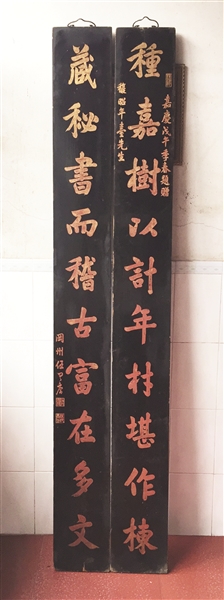 嘉慶戊午季春題贈
種嘉樹以計年材堪作棟
年臺先生
藏秘書而稽古富在多文
岡州伍